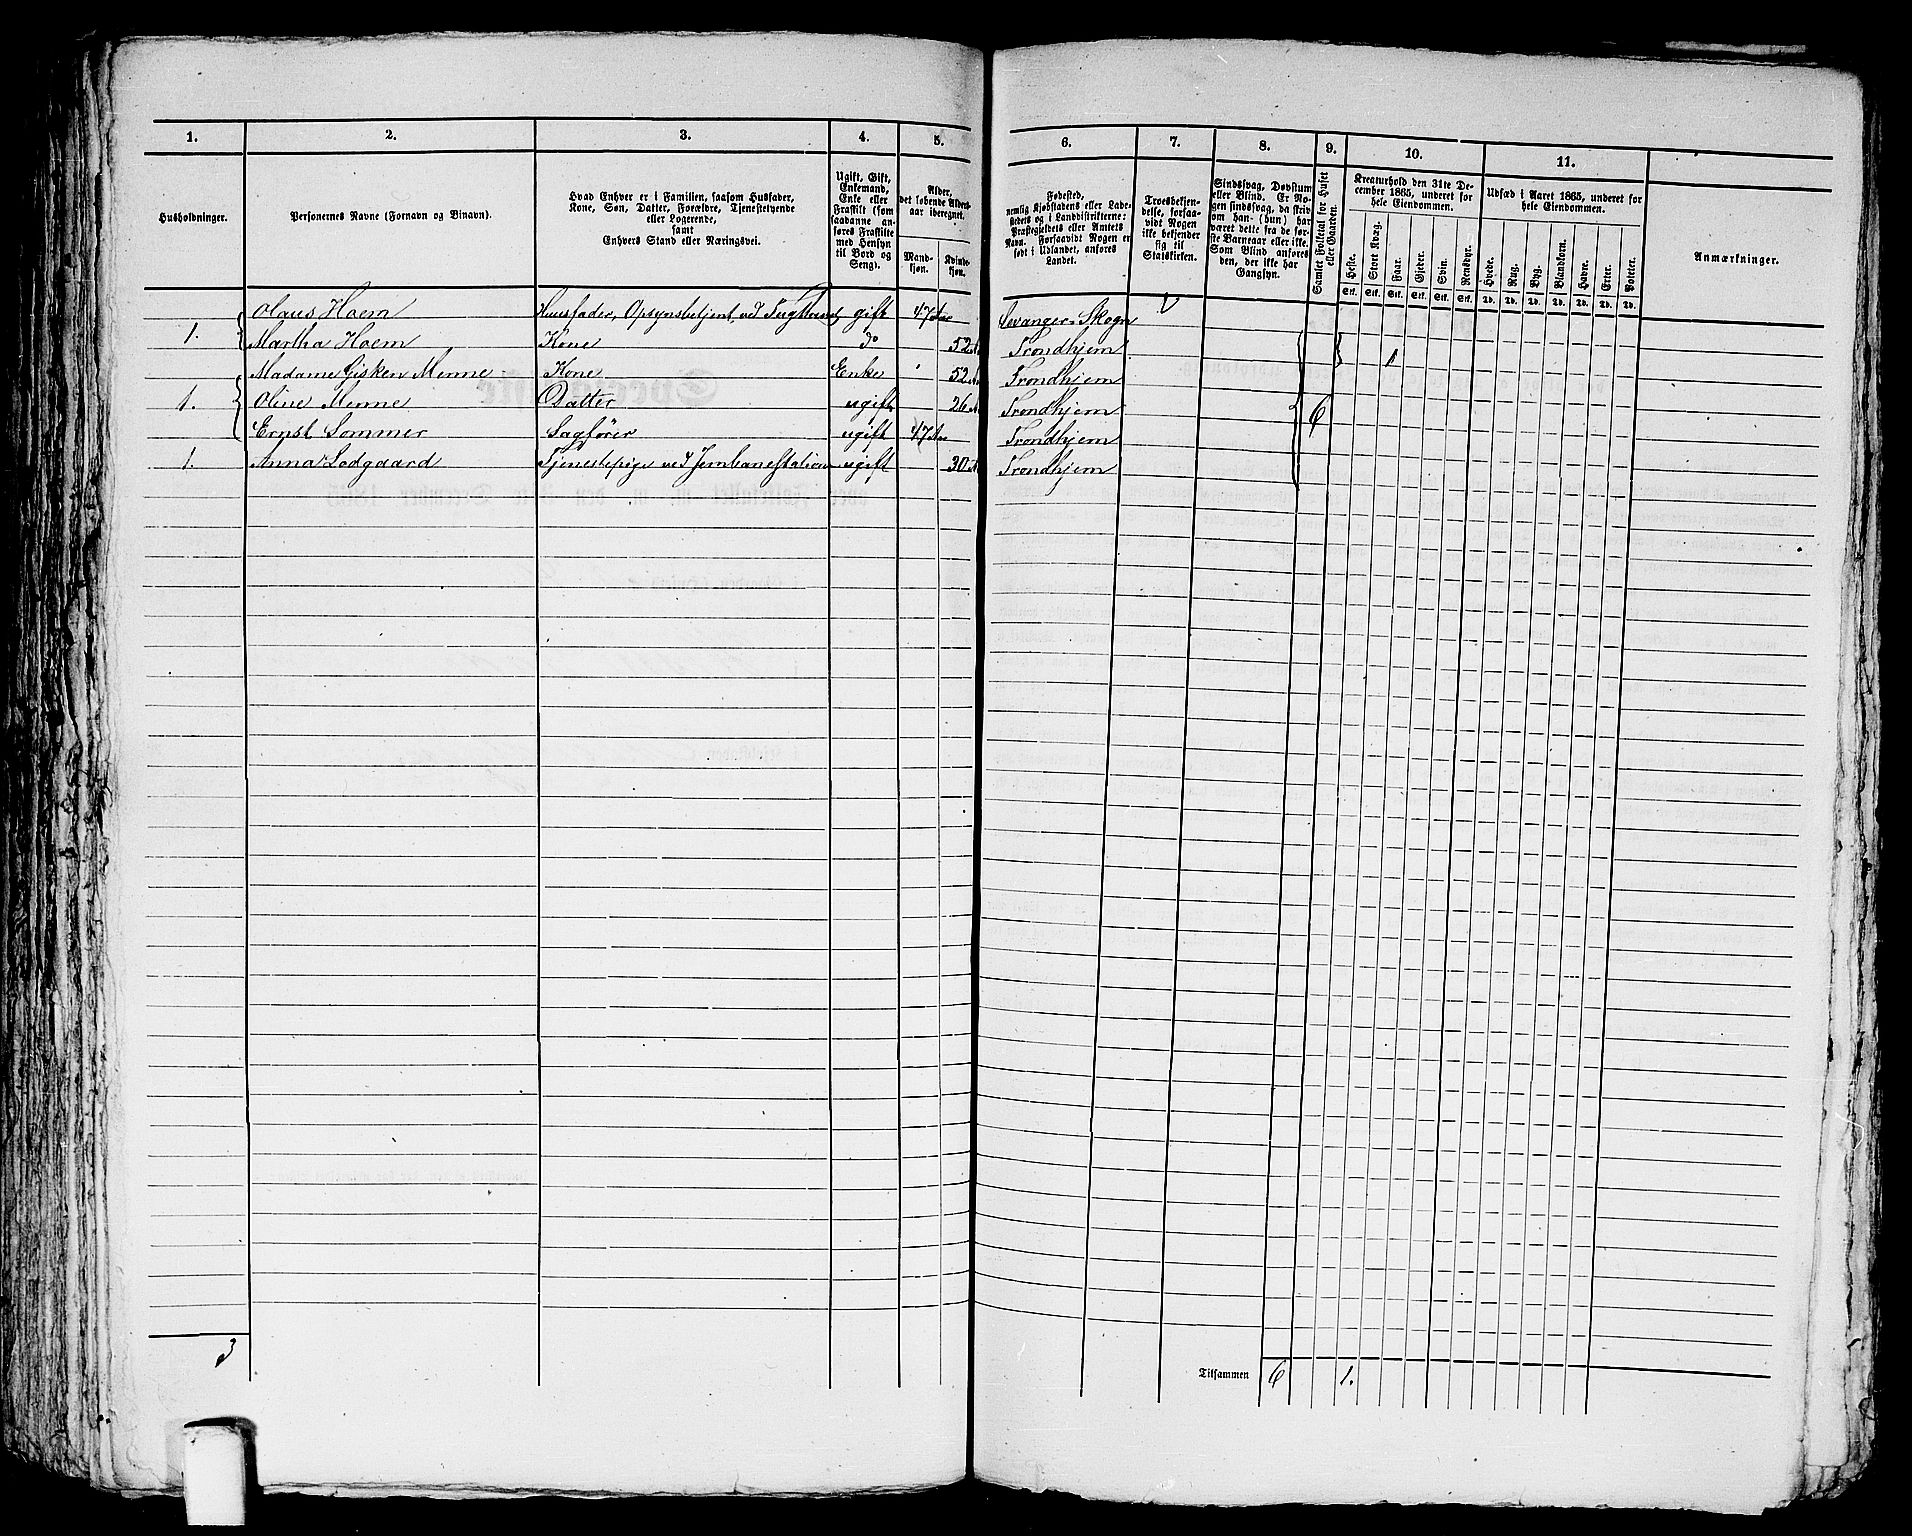 1. 2. 3. 4. 5. 6. 7. 8. 9. 10. 11.
Husholdninger.
Personernes Navne (Fornavn og Binavn).
Hvad Enhver er i Familien, saasom Husfader,
Kone, Søn, Datter, Forældre, Tjenestetyende
eller Logerende,
samt
Enhvers Stand eller Næringsvei.
Ugift, Gift,
Enkemand,
Enke eller
Fraskilt (som
saadanne an-
føres Fraskilte
med Hensyn
til Bord og
Seng).
Alder,
det løbende Alders-
aar iberegnet.
Mand-
kjøn.
Kvinde-
kjøn.
Fødested,
nemlig Kjøbstadens eller Lade-
stedets og i Landdistrikterne:
Præstegjeldets eller Amtets
Navn. Forsaavidt Nogen er
født i Udlandet, anføres
Landet.
Troesbekjen-
delse, forsaa-
vidt Nogen
ikke bekjender
sig til
Statskirken.
Sindssvag, Døvstum
eller Blind. Er No-
gen sindssvag, da skriv
om han (hun) har
været dette fra de før-
ste Barneaar eller ikke.
Som Blind anføres
den, der ikke har
Gangsyn.
Samlet Folketal for Huset
eller Gaarden.
Kreaturhold den 31te De-
cember 1865, underet for
hele Eiendommen.
Heste. Stort Kvæg. Faar. Gjeder. Svin. Rensdyr.
Stk. Stk. Stk. Stk. Stk. Stk.
Udsæd i Aaret 1865, underet for
hele Eiendommen.
Hvede. Rug. Byg. Blandkorn. Havre. Erter. Poteter.
Td. Td. Td. Td. Td. Td. Td.
Anmærkninger.
Olaus Hoem Huusfader, Opsynsbetjent ved gift 47 Levanger Skogn
1. Martha Hoem Kone do 52 Trondhjem 1
Madame Gisken Menne Kone Enke 52 Trondhjem
1. Oline Menne Datter ugift 26 Trondhjem 6
Ernst Sommer Sagfører ugift 47 Trondhjem
1. Anna Lodgaard Tjenestepige ved Jernbanestation ugift 30 Trondhjem
3 Tilsammen 6 1.